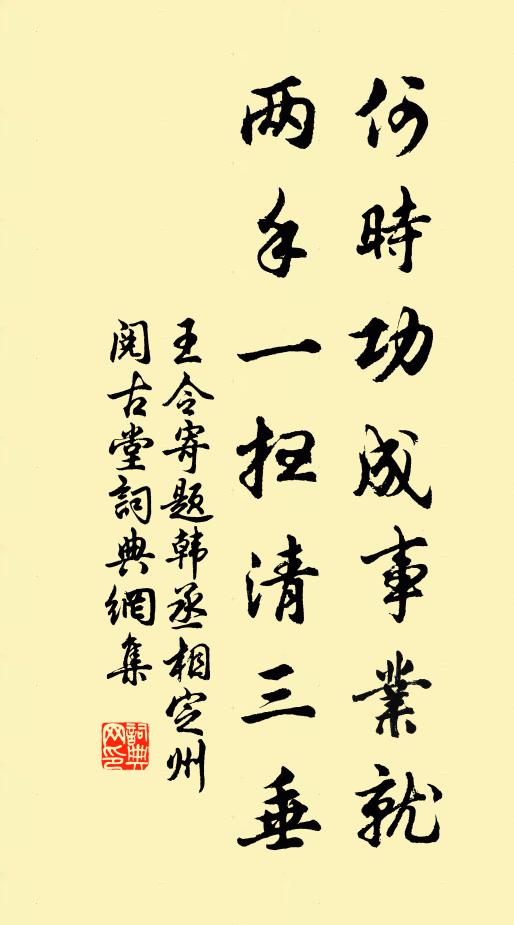 何時功成事業就
两手一扫清三垂
王令寄题韩丞相定州
阅古堂詞典網集
詞典网印